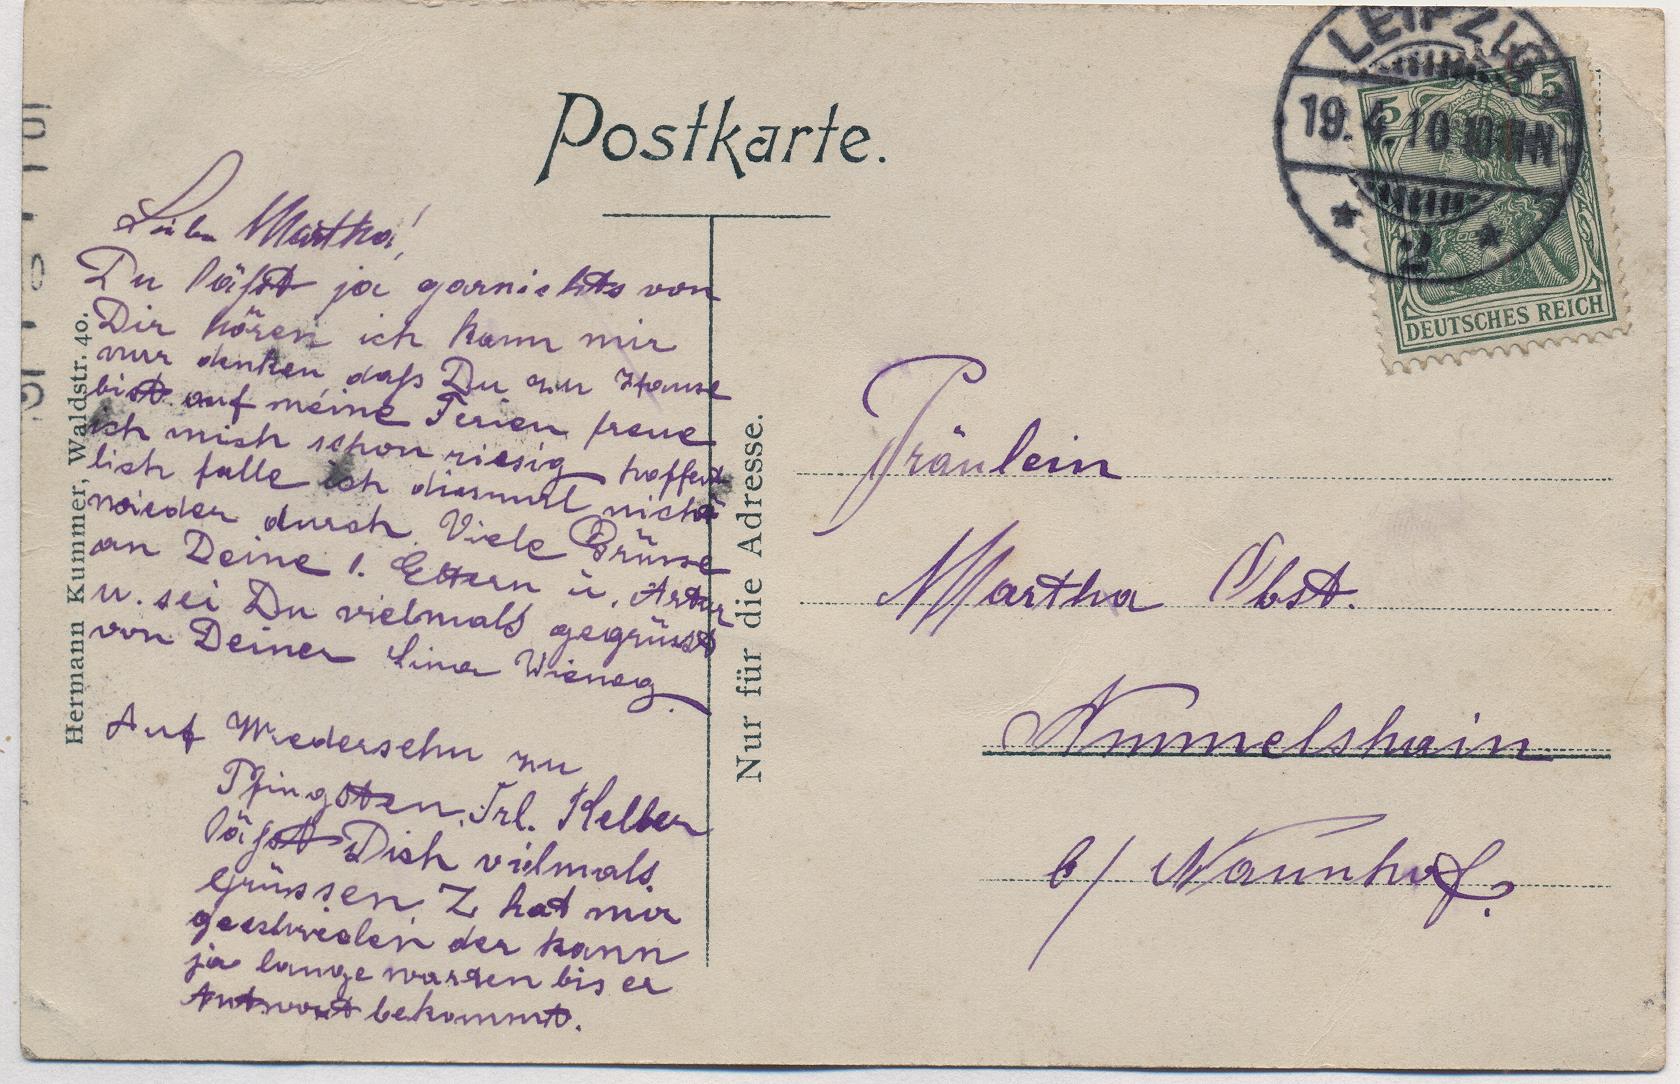 Postkarte.
LEIPZIG
19.4.10 10-11N
* 2 *
5 5
DEUTSCHES REICH
Hermann Kummer, Waldstr. 40.
Nur für die Adresse.
Liebe Martha!
Du läßst ja garnichts von
Dir hören, ich kann mir
nur denken, daß Du zu Hause
bist auf meine Ferien freue
ich mich schon riesig hoffent
lich falle ich diesmal nicht
wieder durch. Viele Grüsse
an Deine l. Eltern u. Artur
u. sei Du vielmals gegrüsst
von Deiner Lina Wieneg.
Auf Wiedersehn zu
Pfingsten. Frl. Kelber
läßst Dich vielmals
Grüssen. Z hat mir
geschrieben der kann
ja lange warten bis er
Antwort bekommt.
Fräulein
Martha Obst.
Ammelshain
b/ Naunhof.